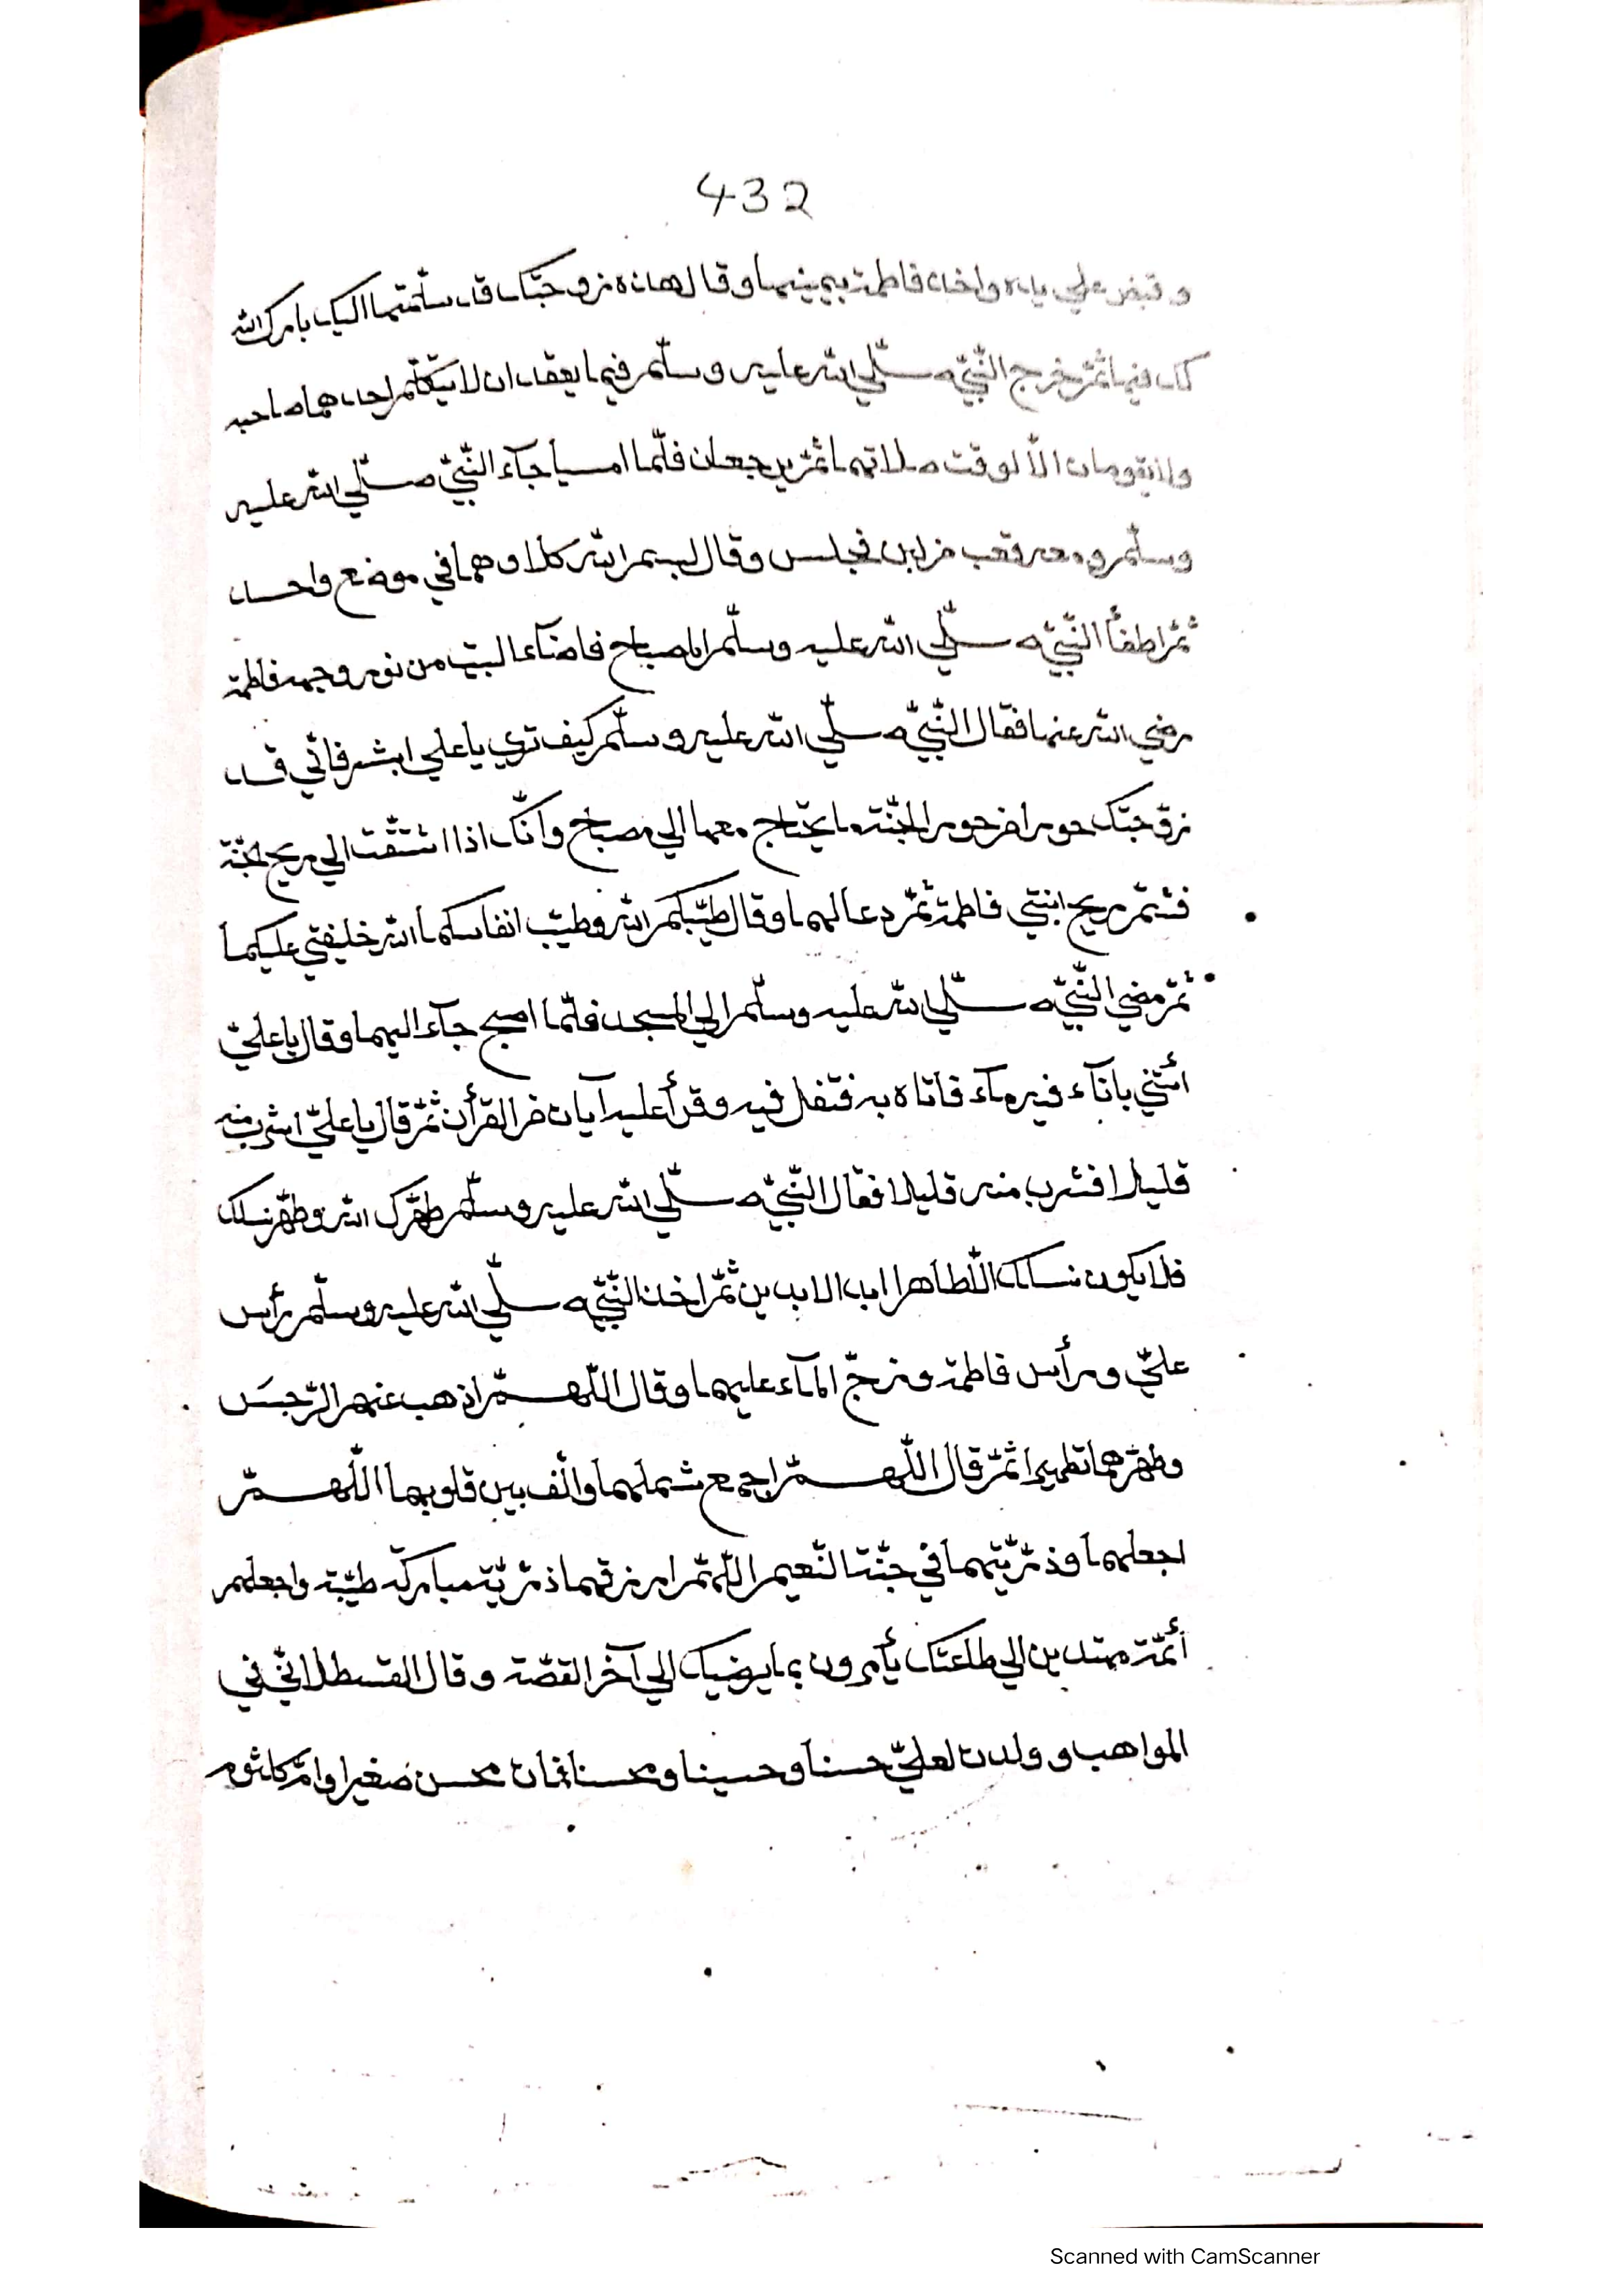 432
و قبض علي يده واخذت فاطمة بيمينها و قال هذه زوجتك قد سلّمتها اليك بارك الله
لك فيها ثمّ خرج النّبيّ صلّي الله عليه و سلّم فيما يعقد ان لا يتكلّم احدهما صاحبه
ولا يقومان الّا لوقت صلاتهما ثمّ يرجعان فلمّا امسيا جآء النّبيّ صلّي الله عليه
وسلّم ومعه قعب من لبن فجلس وقال لبسم الله كلا وهما في موضع واحد
ثمّ اطفأ النّبيّ صلّي الله عليه وسلّم المصباح فاضآءا لبيت من نور وجهه فاطمة
رضي الله عنها فقال النّبيّ صلّي الله عليه وسلّم كيف تري يا علي ابشر فانّي قد
زوّجتك حورا من حور الجنّة ما يحتاج معها الي مصباح وانّك اذا اشتقت الي ريح الجنّة
فشمّ ريح ابنتي فاطمة ثمّ دعا لهما وقال طيّبكم الله وطيّب انفاسكما الله خليفتي عليكما
ثمّ مضي النّبيّ صلّي الله عليه وسلّم الي المسجد فلمّا اصبح جآء اليهما وقال يا عليّ
ائتني بانآء فيه مآء فاتاه به فتفل فيه وقرأ عليه آيات من القرأن ثمّ قال يا عليّ اشرب منه
قليلا فشرب منه قليلا فقال النّبيّ صلّي الله عليه وسلّم طهّرك الله وطهّر نسلك
فلا يكون نسلك الّا طاهرا ابد الابدين ثمّ اخذ النّبيّ صلّي الله عليه وسلّم رأس
عليّ ورأس فاطمة وزجّ المآء عليهما وقال اللّهمّ اذهب عنهم الرّجسَ
وطهّرهما تطهيرا ثمّ قال اللّهمّ اجمع شملهما والّف بين قلوبهما اللّهمّ
اجعلهما وذرّيّتهما في جنّة النّعيم اللّهمّ ارزقهما ذرّيّة مباركة طيّبة واجعلهم
أئمّة مهتدين الي طلعتك يأمرون بما يرضيك الي آخر القصّة وقال القسطلانيّ في
المواهب و ولدت لعليّ حسنا وحسينا ومحسنا فمات محسن صغيرا وامّ كلثوم
Scanned with CamScanner